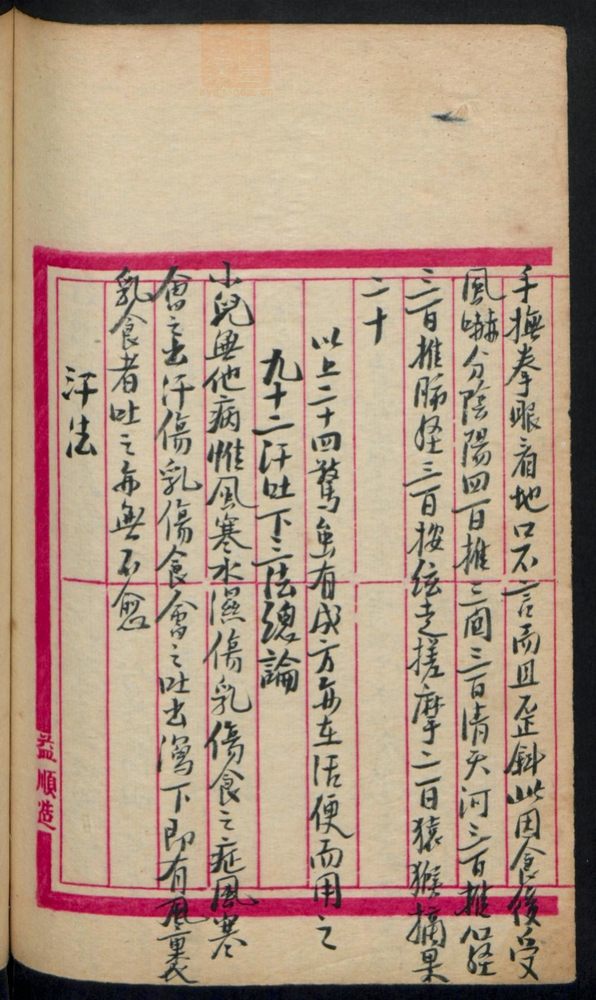 手撫拳眼看地口不言而且歪斜此因食後受
風嚇分陰陽四百推三関三百清天河三百推心経
三百推肺経三百按弦走搓摩二百猿猴摘果
二十
以上二十四驚虽有成方每在活便而用之
九十二汗吐下三法總論
小兒無他病惟風寒水濕傷乳傷食之症風寒
會之去汗傷乳傷食會之吐去瀉下即有風裹
乳食者吐之每無不愈
汗法
益順造